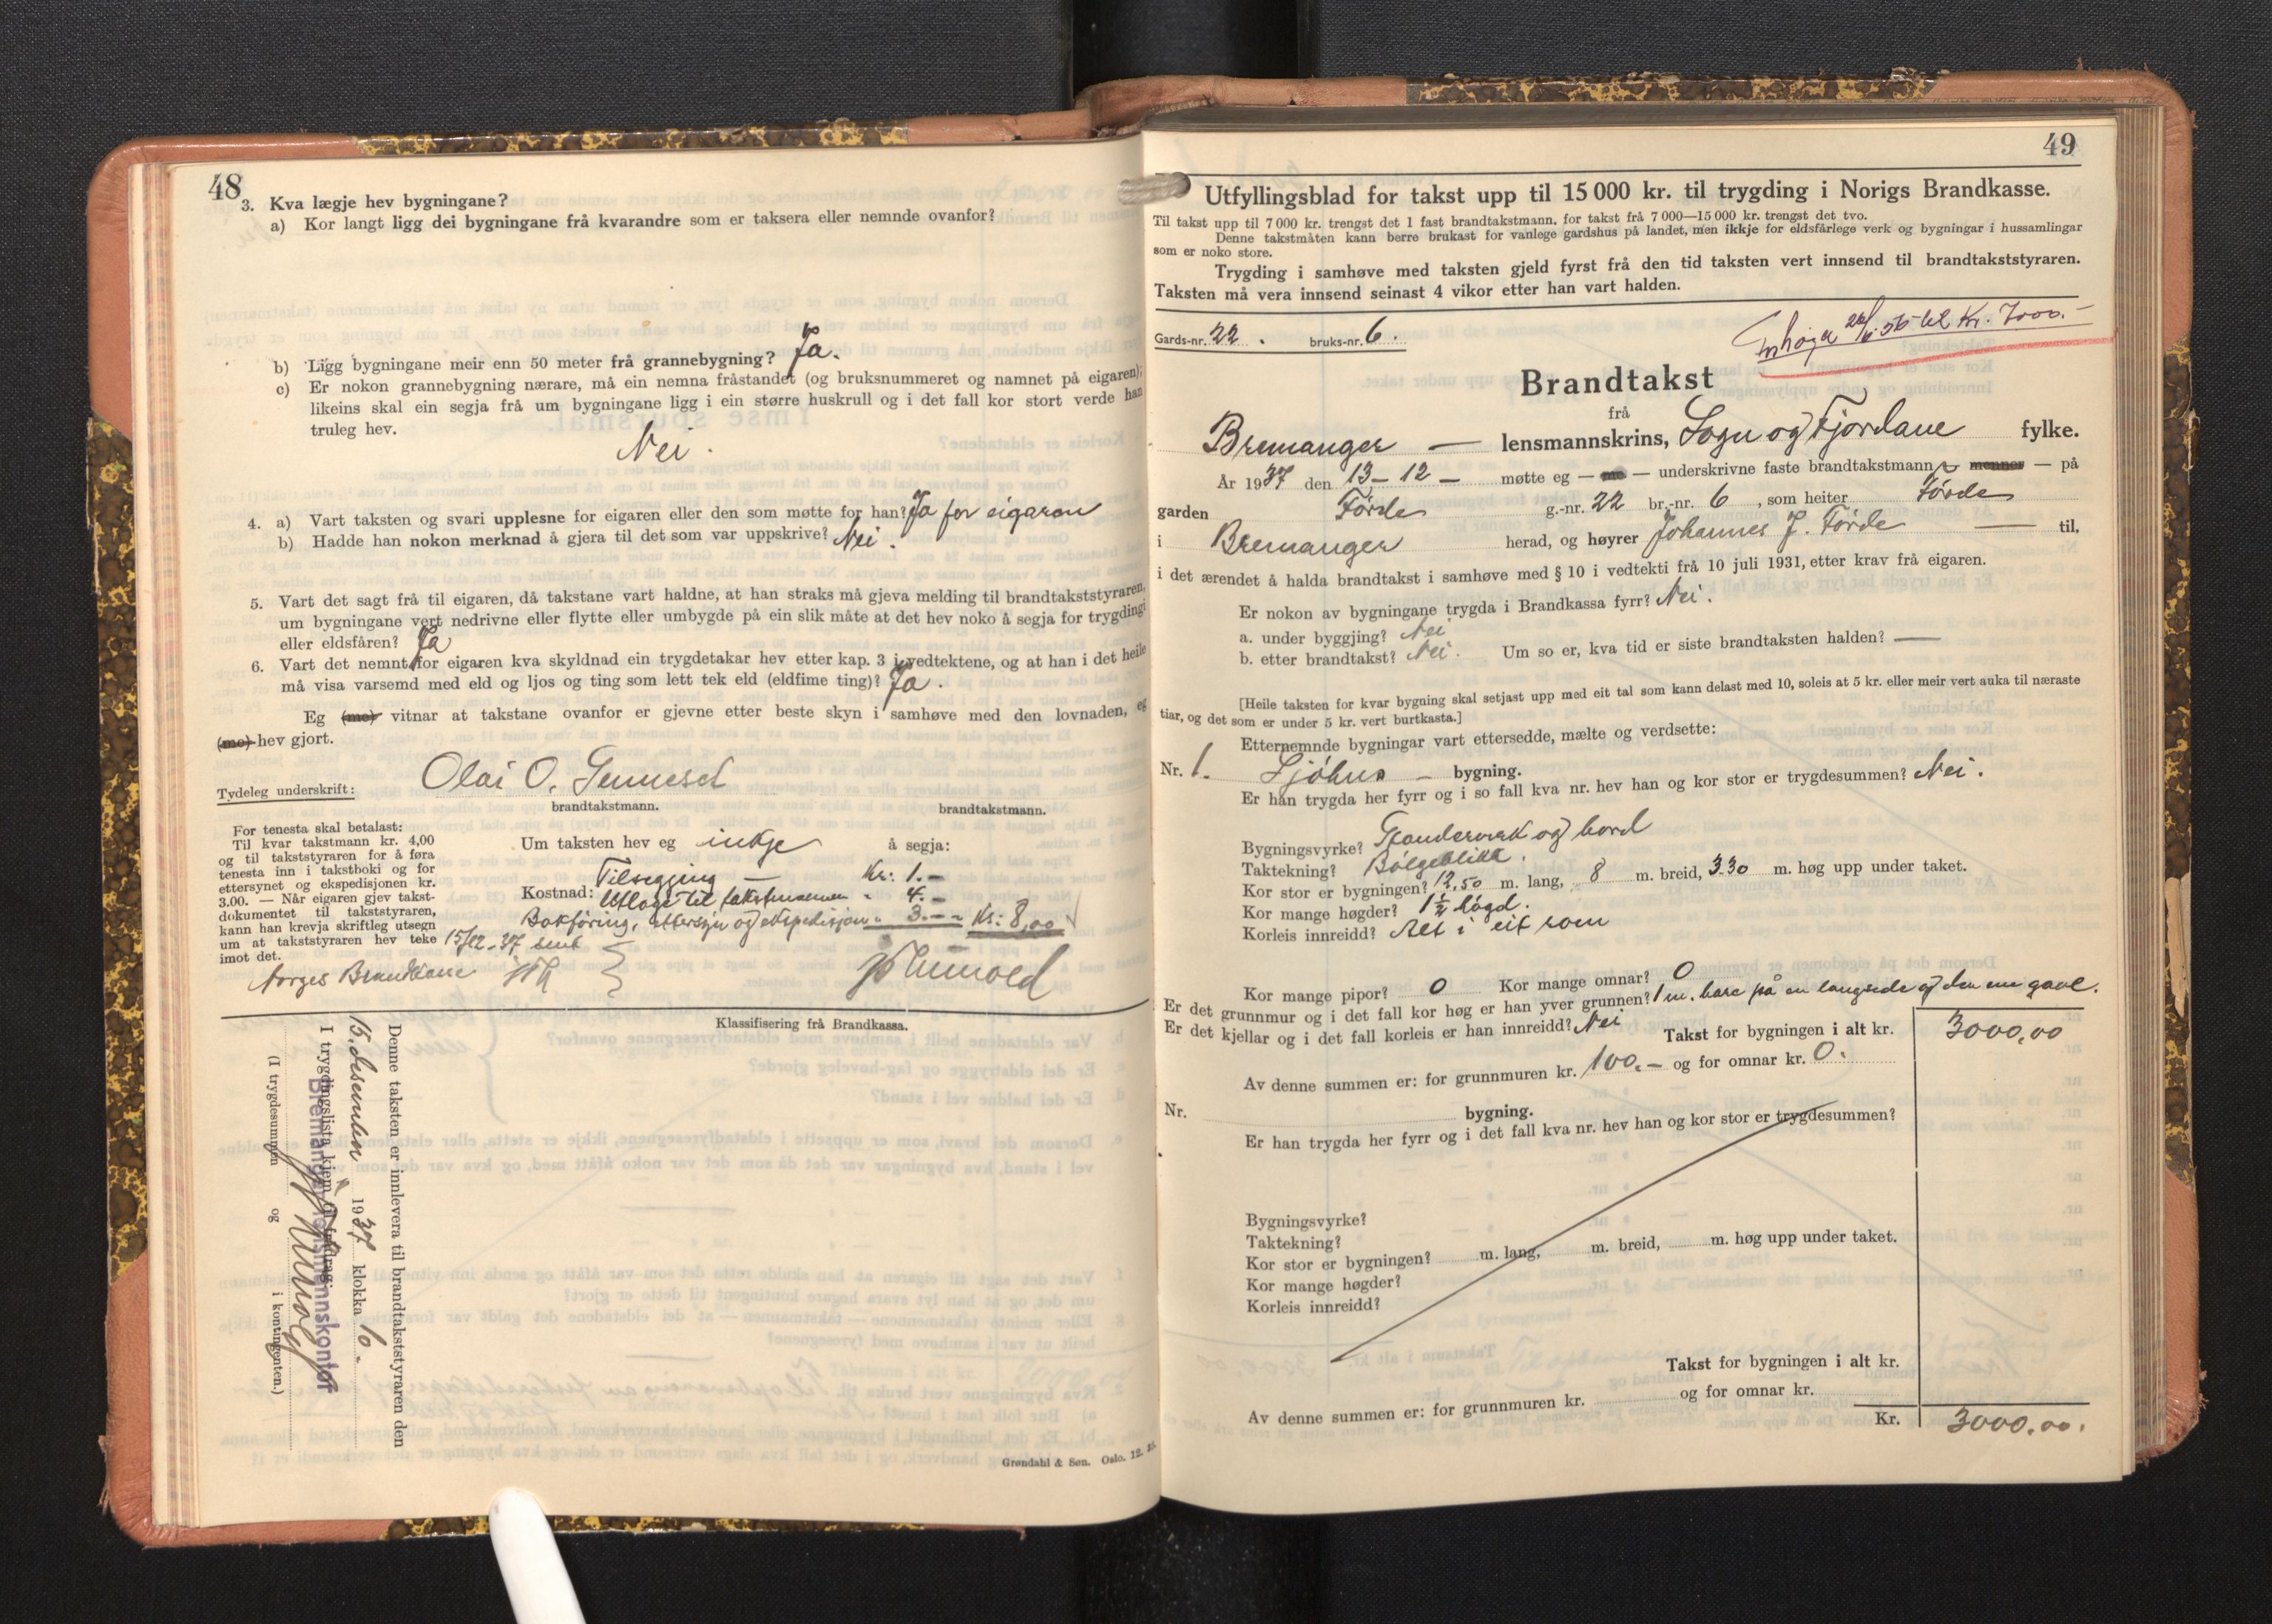 48
3. Kva lægje hev bygningane?
a) Kor langt ligg dei bygningane frå kvarandre som er taksera eller nemnde ovanfor?
b) Ligg bygningane meir enn 50 meter frå grannebygning? Ja.
c) Er nokon grannebygning nærare, må ein nemna fråstandet (og bruksnummeret og namnet på eigaren);
likeins skal ein segja frå um bygningane ligg i ein større huskrull og i det fall kor stort verde han
truleg hev.
Nei.
4. a) Vart taksten og svari upplesne for eigaren eller den som møtte for han? Ja for eigaren
b) Hadde han nokon merknad å gjera til det som var uppskrive? Nei.
5. Vart det sagt frå til eigaren, då takstane vart haldne, at han straks må gjeva melding til brandtakststyraren,
um bygningane vert nedrivne eller flytte eller umbygde på ein slik måte at det hev noko å segja for trygdingi
eller eldsfåren? Ja
6. Vart det nemnt for eigaren kva skyldnad ein trygdetakar hev etter kap. 3 i vedtektene, og at han i det heile
må visa varsemd med eld og ljos og ting som lett tek eld (eldfime ting)? Ja.
Eg (me) vitnar at takstane ovanfor er gjevne etter beste skyn i samhøve med den lovnaden, eg
(me) hev gjort.
Tydeleg underskrift: Olai O.
brandtakstmann. brandtakstmann.
For tenesta skal betalast:
Til kvar takstmann kr. 4,00
og til takststyraren for å føra
tenesta inn i takstboki og for
ettersynet og ekspedisjonen kr.
3.00. — Når eigaren gjev takst-
dokumentet til takststyraren,
kann han krevja skriftleg utsegn
um at takststyraren hev teke
imot det.
Um taksten hev eg inkje å segja:
Kostnad: Tilsegging — Kr: 1.-
Utlage til takstmannen " 4.-
Bokføring, ettersyn og ekspedisjon " 3.— Kr: 8,00
15/12-37 sendt
Norges Brandkasse
Klassifisering frå Brandkassa.
Denne taksten er innlevera til brandtakststyraren den
15. desember 1937 klokka 10.
I trygdingslista kjem til frådrag:
Bremanger lensmannskontor
(I trygdesummen og i kontingenten.)
Grøndahl & Søn. Oslo. 12.
49
Utfyllingsblad for takst upp til 15 000 kr. til trygding i Norigs Brandkasse.
Til takst upp til 7 000 kr. trengst det 1 fast brandtakstmann, for takst frå 7 000—15 000 kr. trengst det tvo.
Denne takstmåten kann berre brukast for vanlege gardshus på landet, men ikkje for eldsfårlege verk og bygningar i hussamlingar
som er noko store.
Trygding i samhøve med taksten gjeld fyrst frå den tid taksten vert innsend til brandtakststyraren.
Taksten må vera innsend seinast 4 vikor etter han vart halden.
til Kr. 7000.-
Gards-nr. 22. bruks-nr. 6.
Brandtakst
frå
Bremanger — lensmannskrins, Sogn og Fjordane fylke.
År 1937 den 13-12- møtte eg — me — underskrivne faste brandtakstmann — menner — på
garden Førde g.-nr. 22 br.-nr. 6, som heiter Førde
i Bremanger herad, og høyrer Johannes J. Førde — til,
i det ærendet å halda brandtakst i samhøve med § 10 i vedtekti frå 10 juli 1931, etter krav frå eigaren.
Er nokon av bygningane trygda i Brandkassa fyrr? Nei.
a. under byggjing? Nei
b. etter brandtakst? Nei. Um so er, kva tid er siste brandtaksten halden? —
[Heile taksten for kvar bygning skal setjast upp med eit tal som kann delast med 10, soleis at 5 kr. eller meir vert auka til næraste
tiar, og det som er under 5 kr. vert burtkasta.]
Etternemnde bygningar vart ettersedde, mælte og verdsette:
Nr. 1. Sjøhus — bygning.
Er han trygda her fyrr og i so fall kva nr. hev han og kor stor er trygdesummen? Nei.
Bygningsvyrke? Standerverk og bord
Taktekning? Bølgeblikk.
Kor stor er bygningen? 12,50 m. lang, 8 m. breid, 3.30 m. høg upp under taket.
Kor mange høgder? 1½ høgd.
Korleis innreidd? Alt i eit rom
Kor mange pipor? 0 Kor mange omnar? 0
Er det grunnmur og i det fall kor høg er han yver grunnen? 1 m. bare på en langside og den ene gavl.
Er det kjellar og i det fall korleis er han innreidd? Nei Takst for bygningen i alt kr. 3000,00
Av denne summen er: for grunnmuren kr. 100.- og for omnar kr. 0.
Nr. bygning.
Er han trygda her fyrr og i det fall kva nr. hev han og kor stor er trygdesummen?
Bygningsvyrke?
Taktekning?
Kor stor er bygningen? m. lang, m. breid, m. høg upp under taket.
Kor mange høgder?
Korleis innreidd?
Takst for bygningen i alt kr.
Av denne summen er: for grunnmuren kr. og for omnar kr.
Kr. 3000.00.